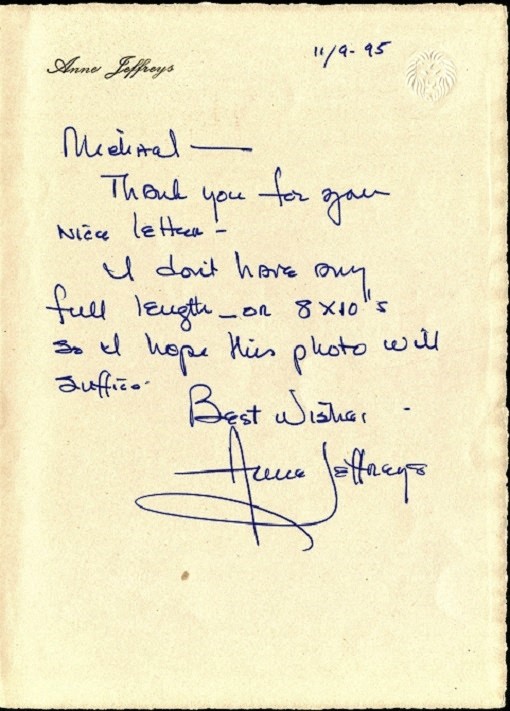 Anne Jeffreys
11/9-95
Michael —
Thank you for your
nice letter -
I don't have any
full length - or 8x10"s
so I hope this photo will
suffice.
Best Wishes -
Anne Jeffreys